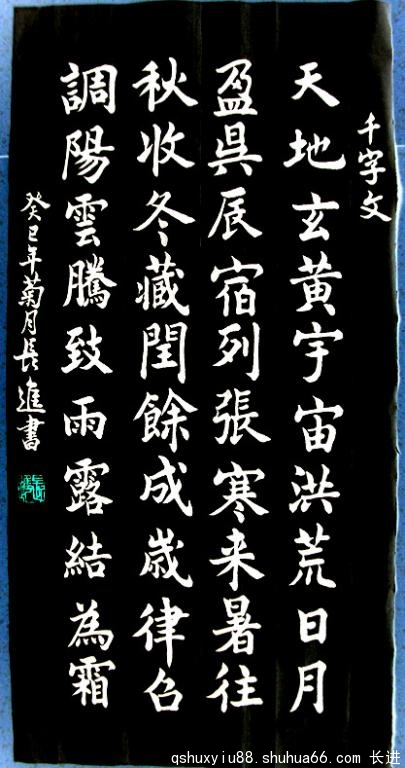 千字文
天地玄黄宇宙洪荒日月
盈昃辰宿列張寒来暑往
秋收冬藏閏餘成嵗律召
調陽雲騰致雨露結為霜
癸巳年菊月長進書
qshuxyiu88.shuhua66.com 长进